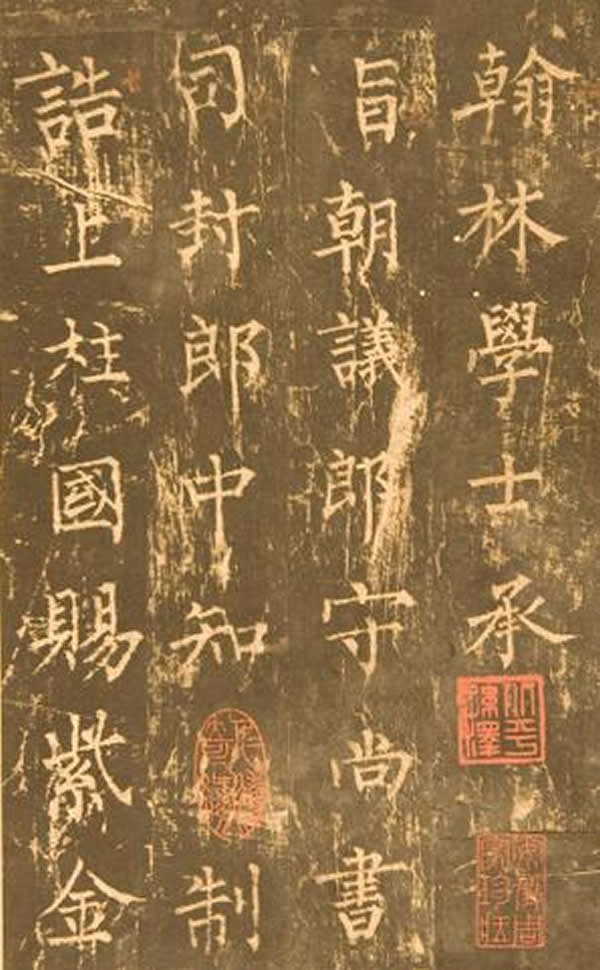 翰林學士承
旨朝議郎守尚書
司封郎中知 制
誥上柱國賜紫金